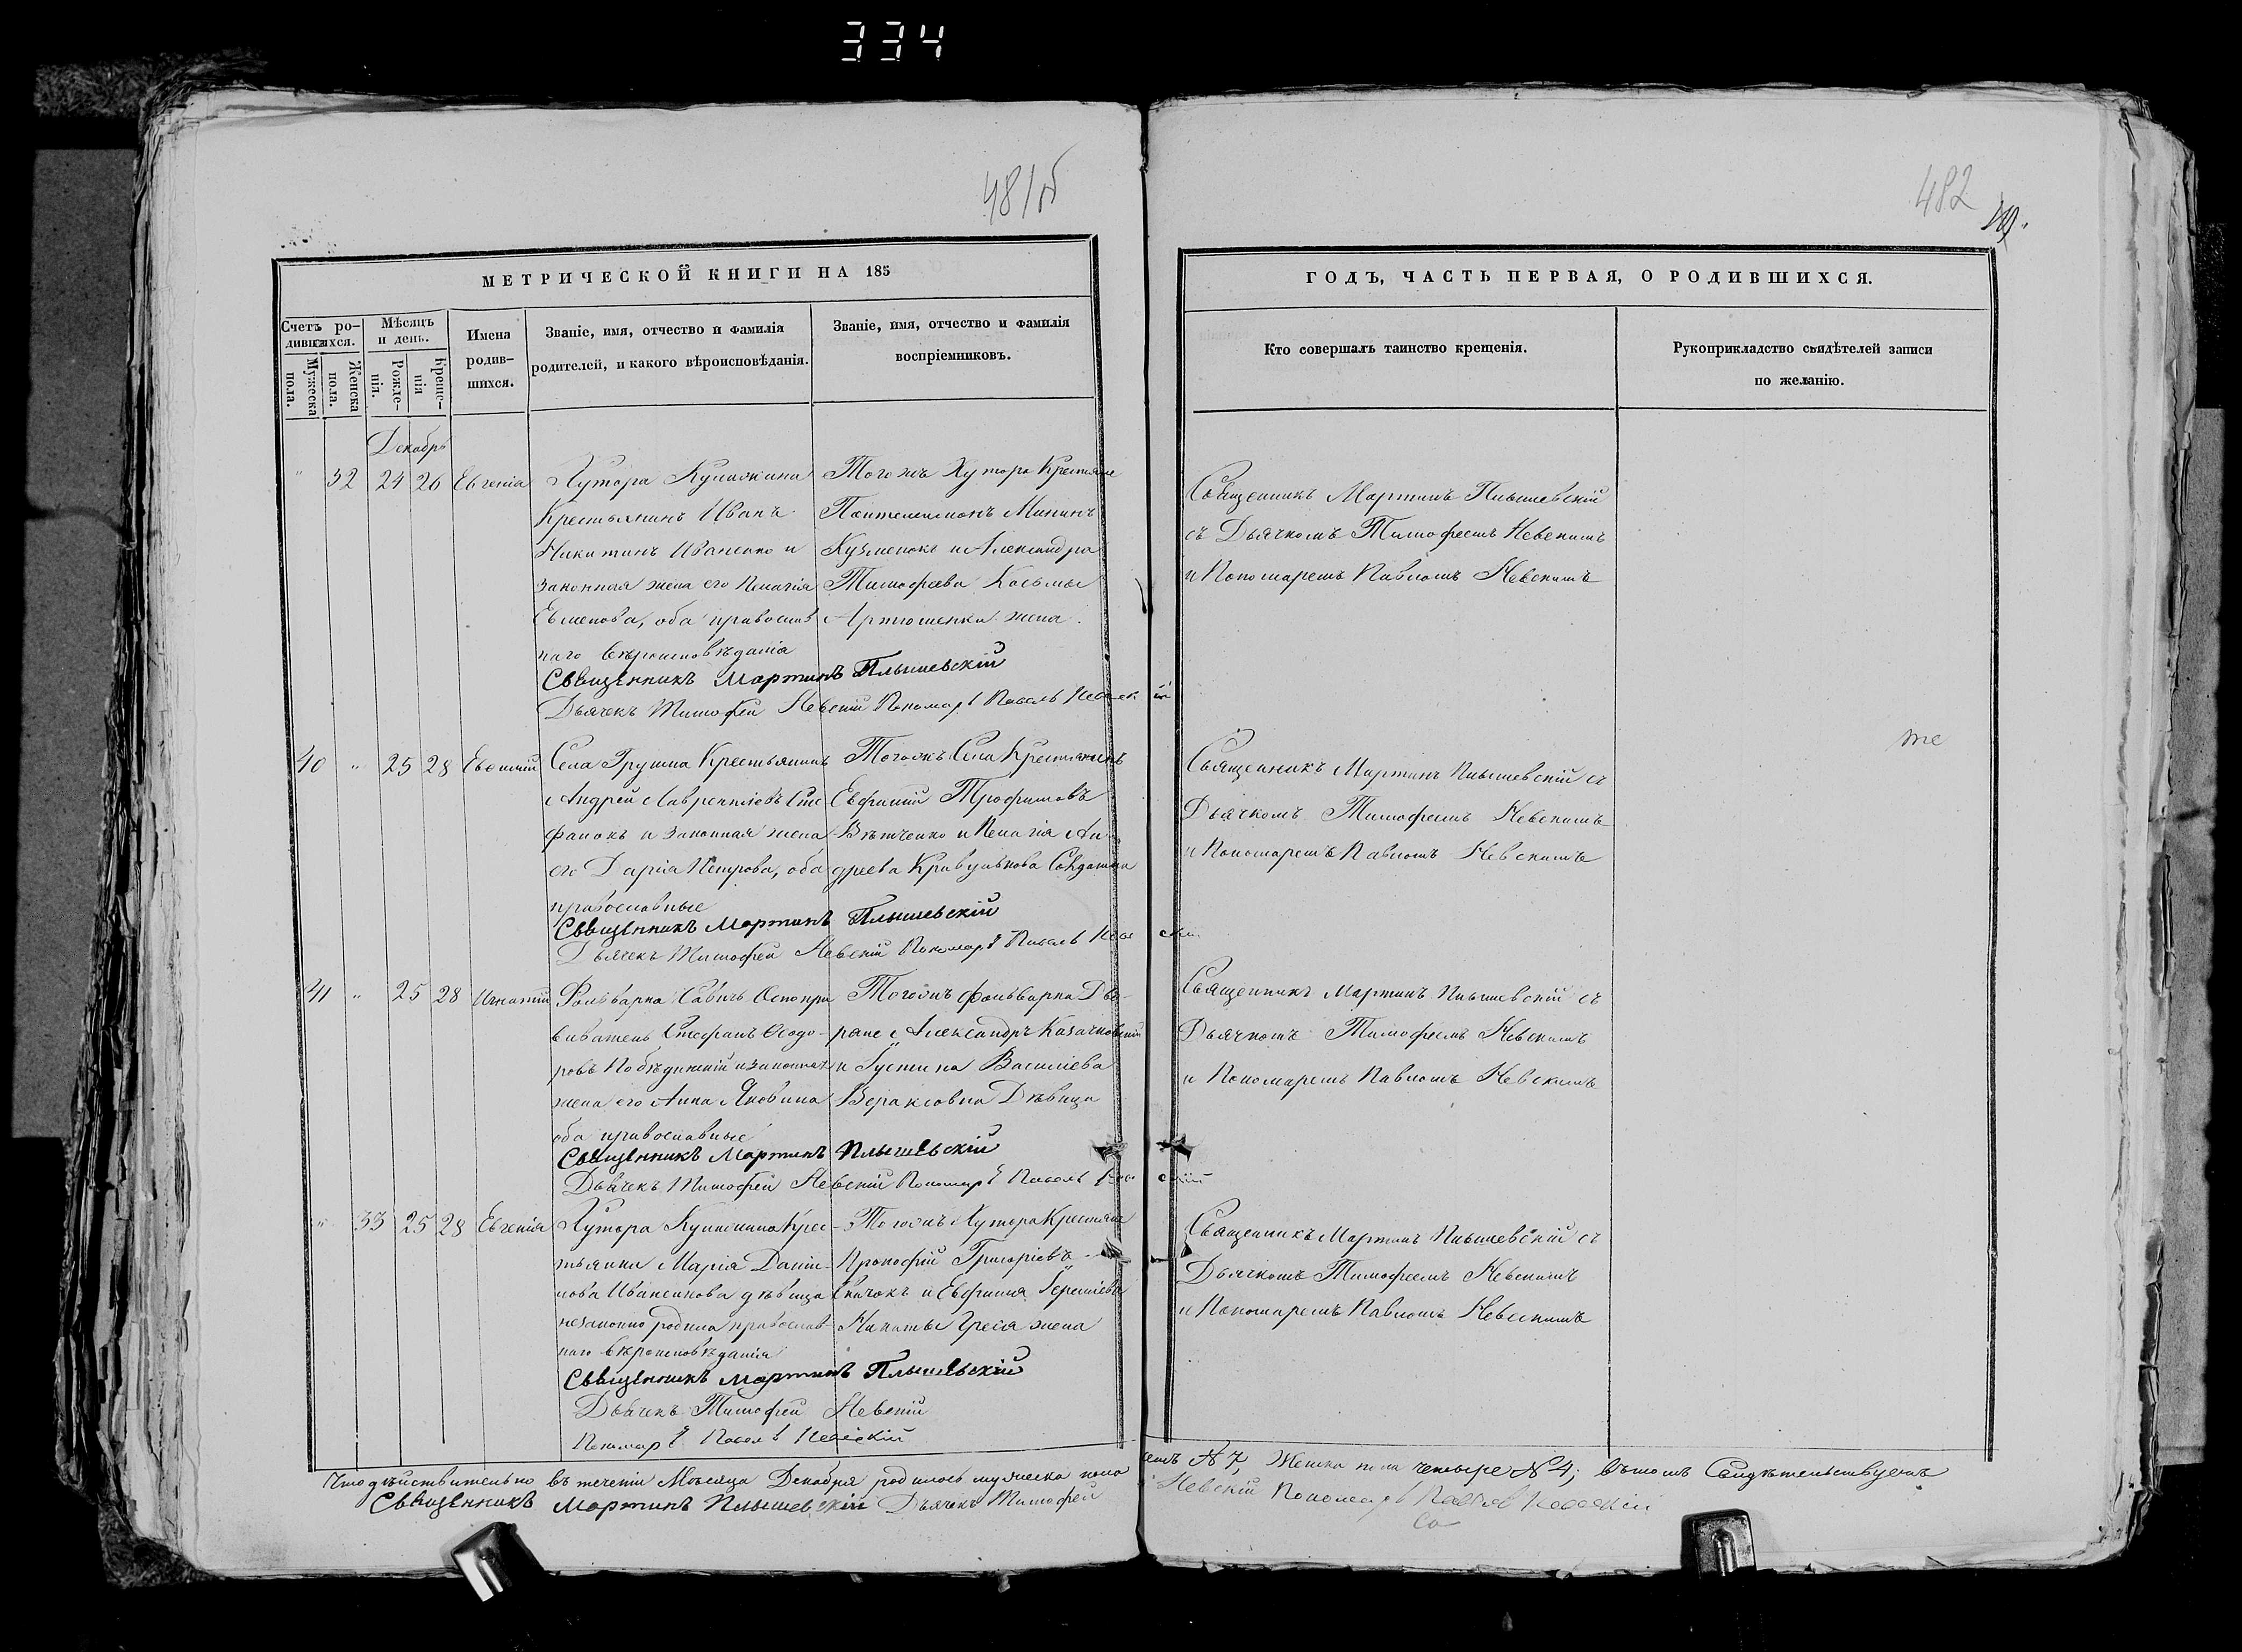 334
481б
482
МЕТРИЧЕСКОЙ КНИГИ НА 185
ГОДЪ, ЧАСТЬ ПЕРВАЯ, О РОДИВШИХСЯ.
Счетъ ро-
дившихся.
Мужеска пола.
Женска пола.
Мѣсяцъ
и день.
Рожде-
нія.
Креще-
нія
Имена
родив-
шихся.
Званіе, имя, отчество и фамилія
родителей, и какого вѣроисповѣданія.
Званіе, имя, отчество и фамилія
воспріемниковъ.
Кто совершалъ таинство крещенія.
Рукоприкладство свидѣтелей записи
по желанію.
Декабрь
" 32 24 26 Евгенія
Хутора
Крестьянинъ Иванъ
Никитинъ Иваненко и
законная жена его Пелагія
Евменова, оба православ
наго вѣроисповѣданія
Тогожъ Хутора Крестьяне
Пантелимонъ Мининъ
Кузменокъ и Александра
Тимофеева Косьмы
Артюшенки жена.
Священникъ Мартинъ Плышевскій
съ Дьячкомъ Тимофеемъ Невскимъ
и Пономаремъ Павломъ Невскимъ
Священникъ Мартинъ Плышевскій
Дьячекъ Тимофей Невскій Пономарь Павелъ Невскій
40 " 25 28 Евфимій
Села Грушна Крестьянинъ
Андрей Лаврентіевъ Сте
фанокъ и законная жена
его Дарія Петрова, оба
православные
Тогожъ Села Крестьянинъ
Евфимій Трофимовъ
и Пелагія Ан-
дреева Кривулькова Солдатка
Священникъ Мартинъ Плышевскій съ
Дьячкомъ Тимофеемъ Невскимъ
и Пономаремъ Павломъ Невскимъ
те
Священникъ Мартинъ Плышевскій
Дьячекъ Тимофей Невскій Пономарь Павелъ Невскій
41 " 25 28 Игнатій
Фольварка Савичъ Оспопри
виватель Стефанъ Ѳеодо-
ровъ и законная
жена его Анна Яковина
оба православные
Тогожъ фольварка Дво-
ряне Александръ Казачковскій
и Іустина Василіева
Вераксовна Дѣвица
Священникъ Мартинъ Плышевскій съ
Дьячкомъ Тимофеемъ Невскимъ
и Пономаремъ Павломъ Невскимъ
Священникъ Мартинъ Плышевскій
Дьячекъ Тимофей Невскій Пономарь Павелъ Невскій
" 33 25 28 Евгенія
Хутора Крес-
тьянка Марія Даніи-
лова Иваненкова дѣвица
незаконно родила православ-
наго вѣроисповѣданія
Тогожъ Хутора Крестьяне
Прокофій Григоріевъ
и Евфимія Іереміева
Никиты жена
Священникъ Мартинъ Плышевскій съ
Дьячкомъ Тимофеемъ Невскимъ
и Пономаремъ Павломъ Невскимъ
Священникъ Мартинъ Плышевскій
Дьячекъ Тимофей Невскій
Пономарь Павелъ Невскій
Что дѣйствительно въ теченіи Мѣсяца Декабря родилось мужеска пола семь № 7, Женска пола четыре № 4; въ томъ Свидѣтельствуемъ
Священникъ Мартинъ Плышевскій Дьячекъ Тимофей Невскій Пономарь Павелъ Невскій